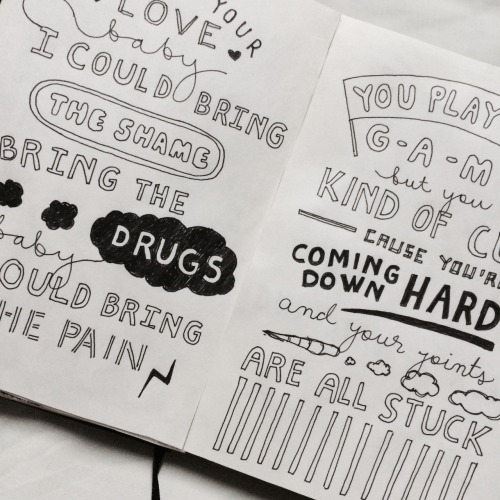 YOUR
LOVE
baby
I COULD BRING
THE SHAME
BRING THE
DRUGS
baby
OULD BRING
HE PAIN
YOU PLAY
G-A-M
but you
KIND OF CU
CAUSE YOU'RE
COMING
DOWN HARD
and your joints
ARE ALL STUCK